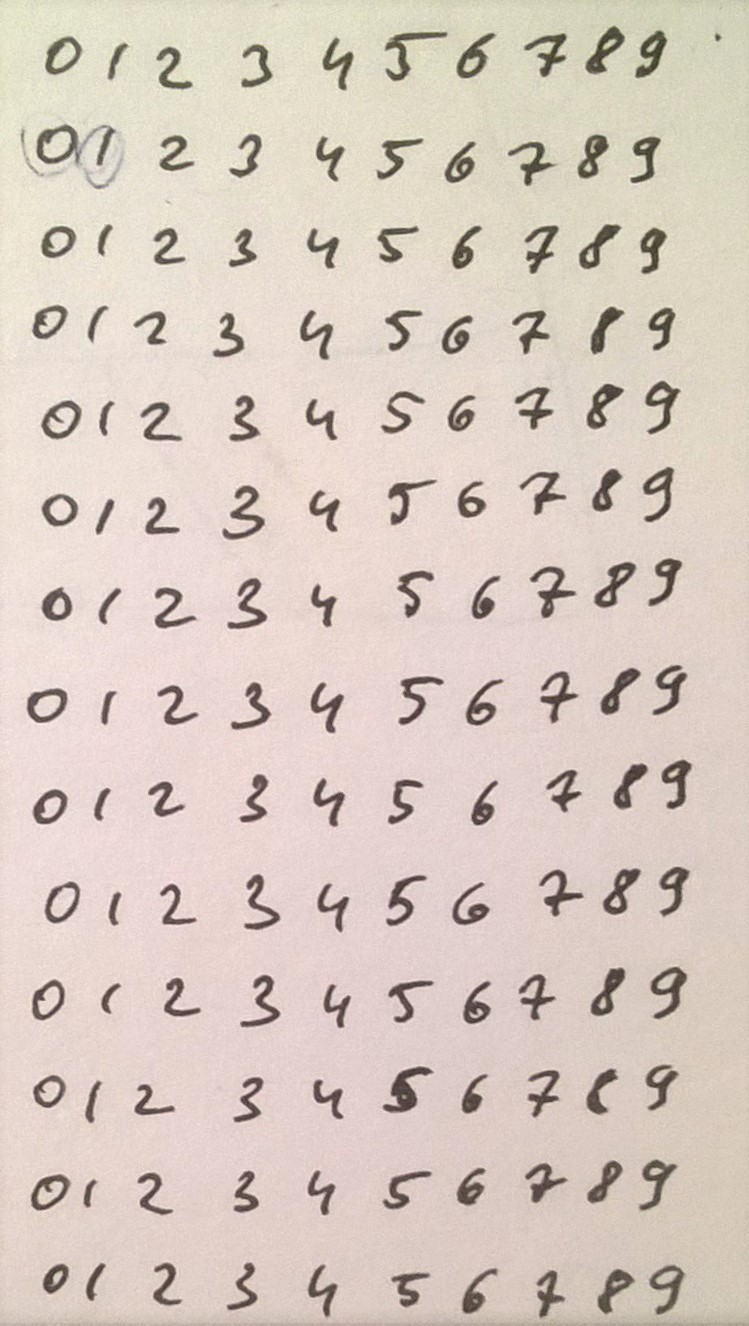 0 1 2 3 4 5 6 7 8 9
0 1 2 3 4 5 6 7 8 9
0 1 2 3 4 5 6 7 8 9
0 1 2 3 4 5 6 7 8 9
0 1 2 3 4 5 6 7 8 9
0 1 2 3 4 5 6 7 8 9
0 1 2 3 4 5 6 7 8 9
0 1 2 3 4 5 6 7 8 9
0 1 2 3 4 5 6 7 8 9
0 1 2 3 4 5 6 7 8 9
0 1 2 3 4 5 6 7 8 9
0 1 2 3 4 5 6 7 8 9
0 1 2 3 4 5 6 7 8 9
0 1 2 3 4 5 6 7 8 9